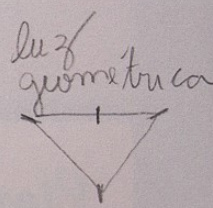 luz
geométrica